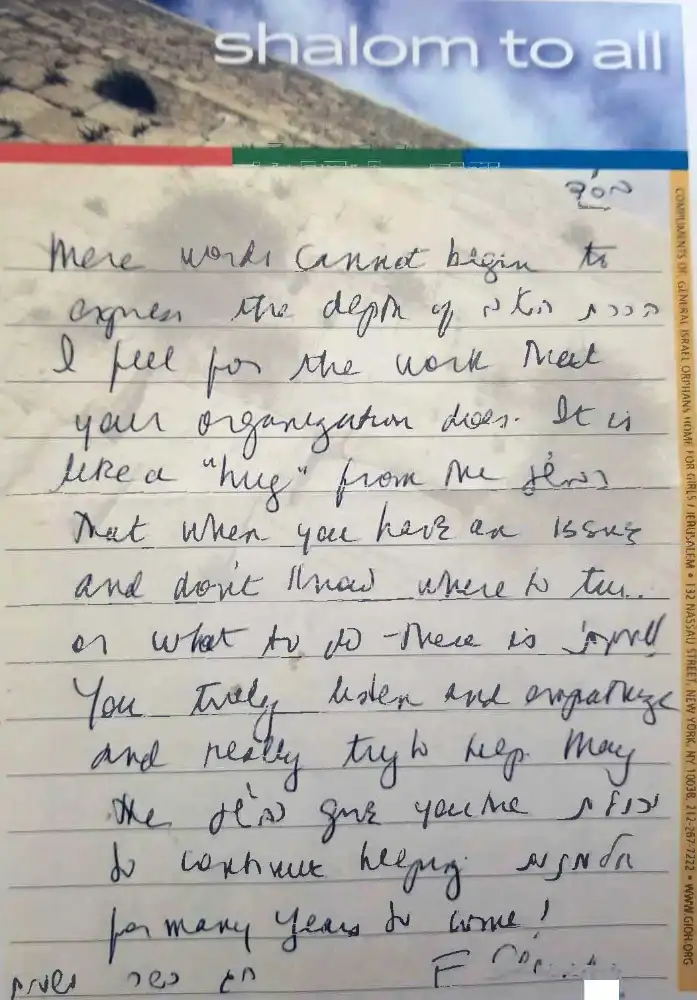 shalom to all
בס"ד
Mere words cannot begin to
express the depth of הכרת
I feel for the work that
your organization does. It is
like a "hug" from the
that when you have an issue
and don't know where to turn
or what to do - there is
You truly listen and empathize
and really try to help. May
the give you the כוחות
to continue helping אלמנות
for many years to come!
חג כשר ושמח
COMPLIMENTS OF GENERAL ISRAEL ORPHANS HOME FOR GIRLS / JERUSALEM • 132 NASSAU STREET, NEW YORK, NY 10038, 212-267-7222 • WWW.GIOH.ORG